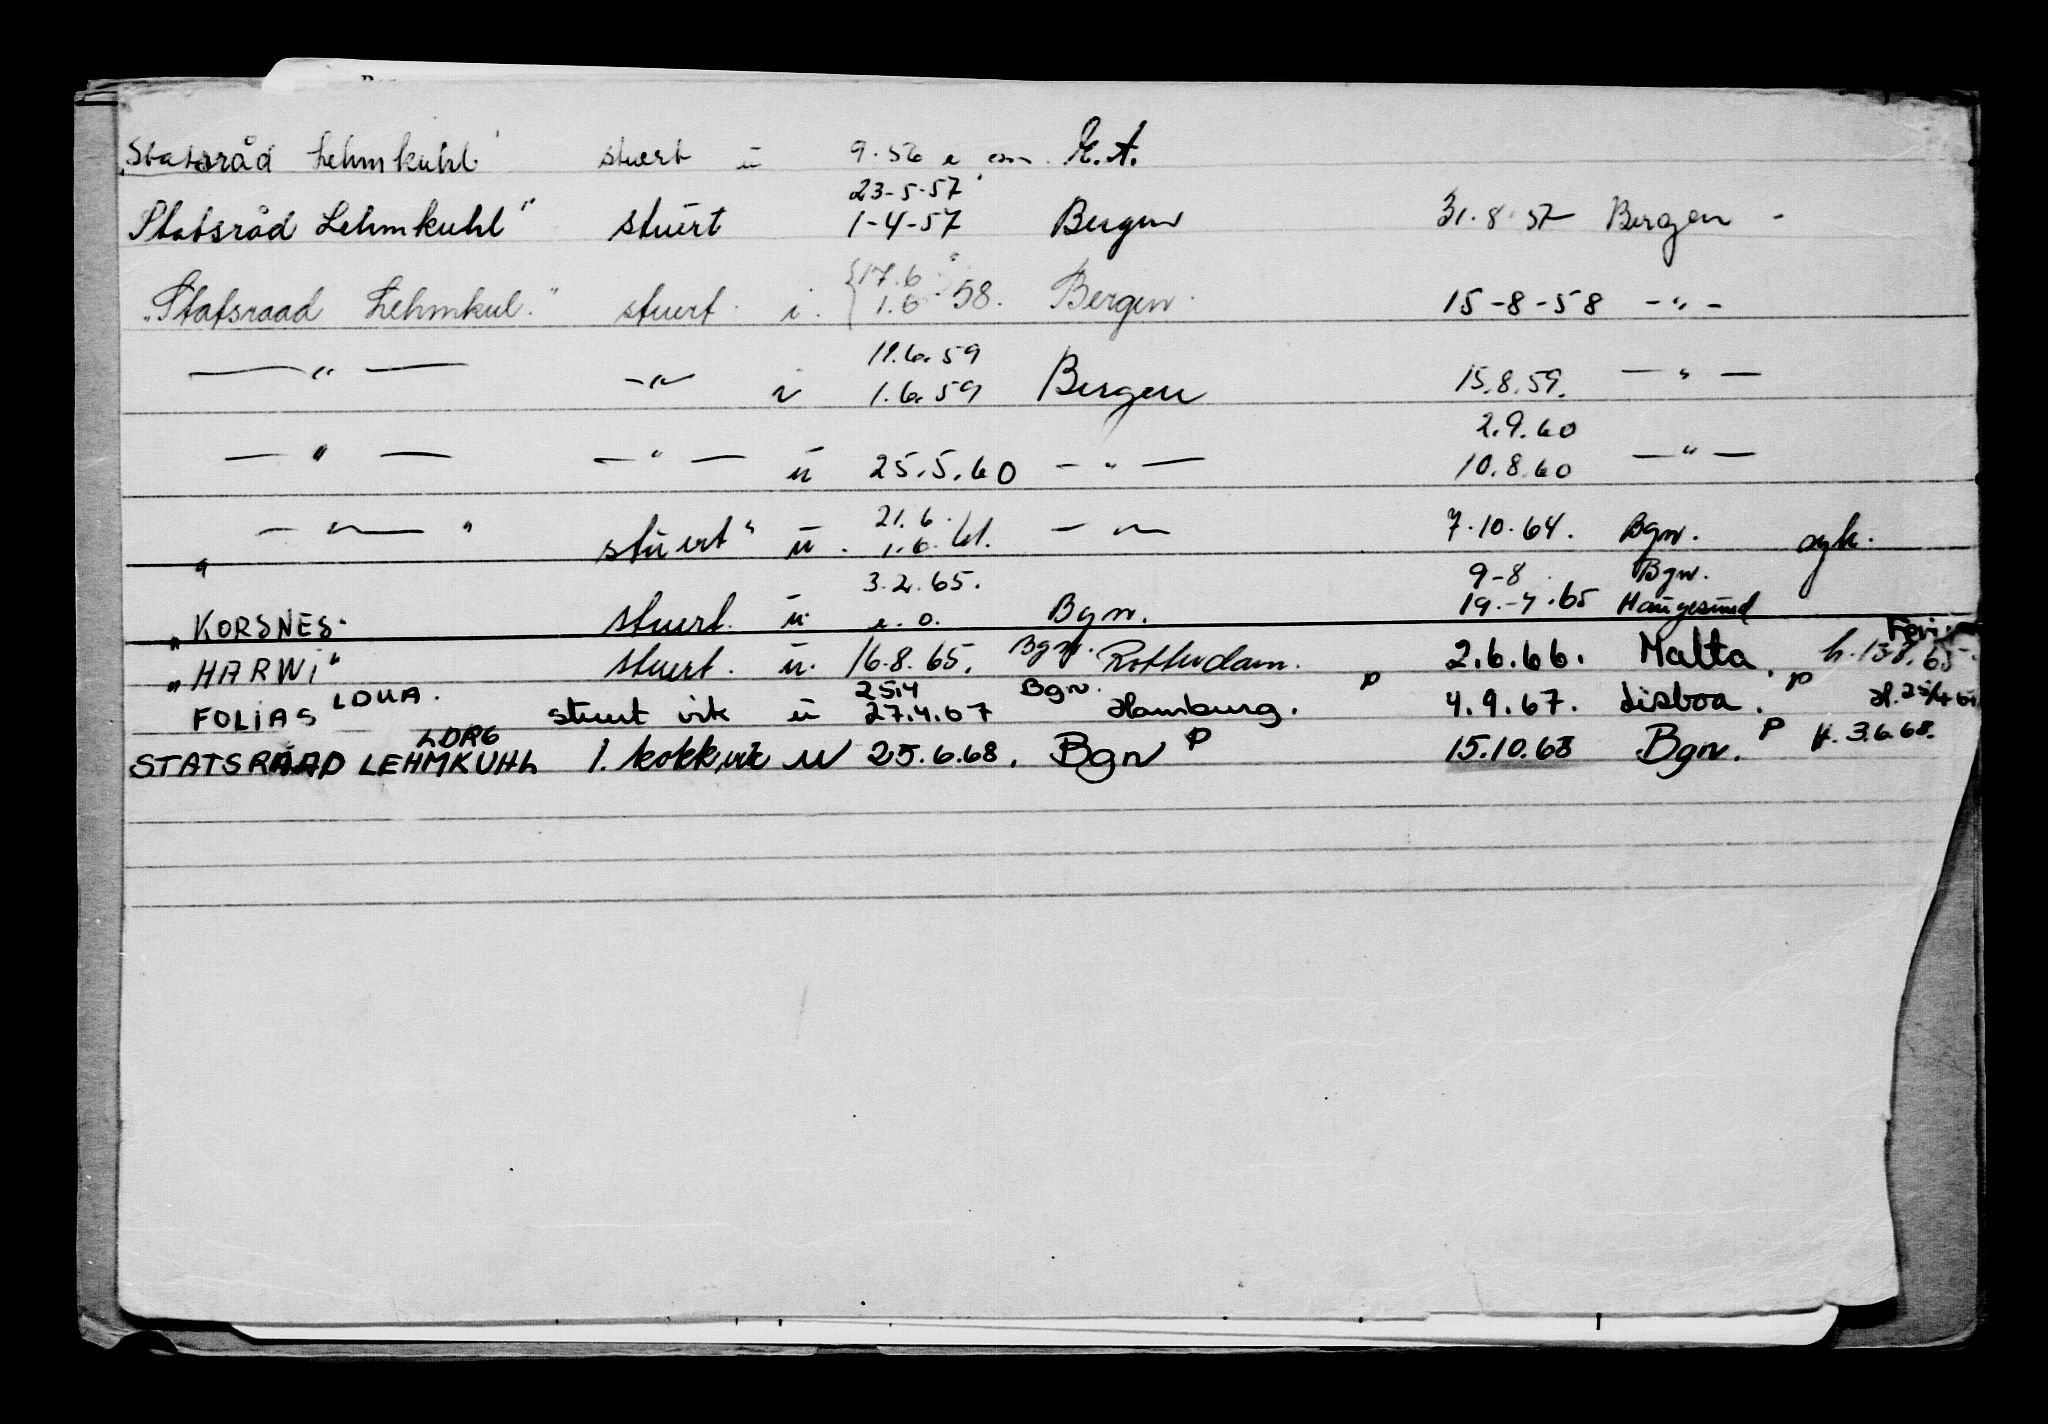 Statsråd Lehmkuhl" stuert ü 9.56 E.A.
23-5-57
Statsråd Lehmkuhl" stuert 1-4-57 Bergen 31.8.57 Bergen -
17.6
"Statsraad Lehmkul." stuert i. 1.6 58. Bergen. 15-8-58 -"-
11.6.59
—"— -"- i 1.6.59 Bergen 15.8.59. —"—
2.9.60
—"— —"— ü 25.5.60 —"— 10.8.60 —"—
21.6.
"—"—" stuert" ü. 1.6.61. —"— 7.10.64. Bgn. syk.
3.2.65. 9-8 Bgn.
"KORSNES. stuert. ü. e.o. Bgn. 19.-7.65 Haugesund
"HARWI" stuert. ü. 16.8.65. Bgn. Rotterdam. 2.6.66. Malta. h.13.8.65
LDUA. 25.4 Bgn. P P
FOLIAS stuert vik ü 27.4.67 Hamburg. 4.9.67. Lisboa.
LDRG P P H. 3.6.68.
STATSRAAD LEHMKUHL 1. kokk,vik ü 25.6.68. Bgn 15.10.68 Bgn.